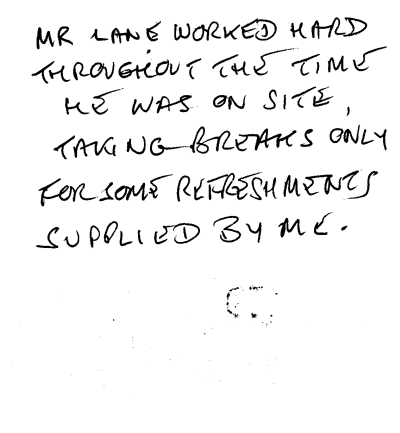 MR LANE WORKED HARD
THROUGHOUT THE TIME
HE WAS ON SITE,
TAKING BREAKS ONLY
FOR SOME REFRESHMENTS
SUPPLIED BY ME.